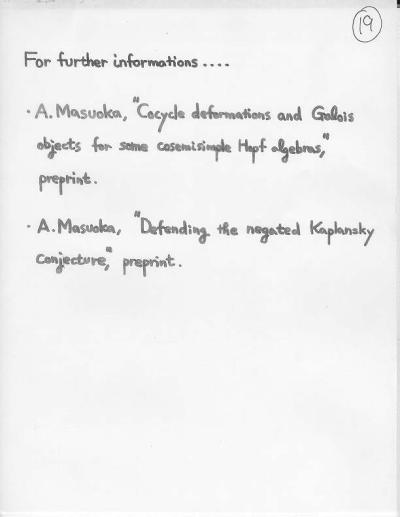 19
For further informations ....
· A. Masuoka, "Cocycle deformations and Galois
objects for some cosemisimple Hopf algebras,"
preprint.
· A. Masuoka, "Defending the negated Kaplansky
conjecture," preprint.